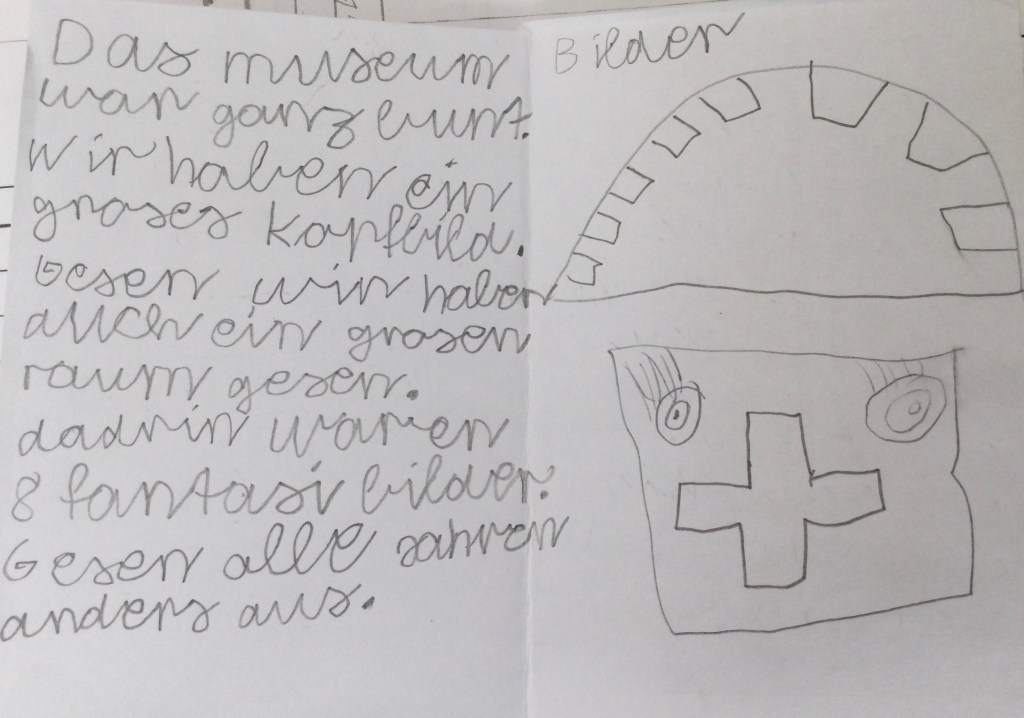 Das museum
war ganz bunt.
Wir haben ein
groses Kopfbild.
Gesen wir haben
auch ein grosen
raum gesen.
dadrin waren
8 fantasi bilder.
Gesen alle sahren
anders aus.
Bilder